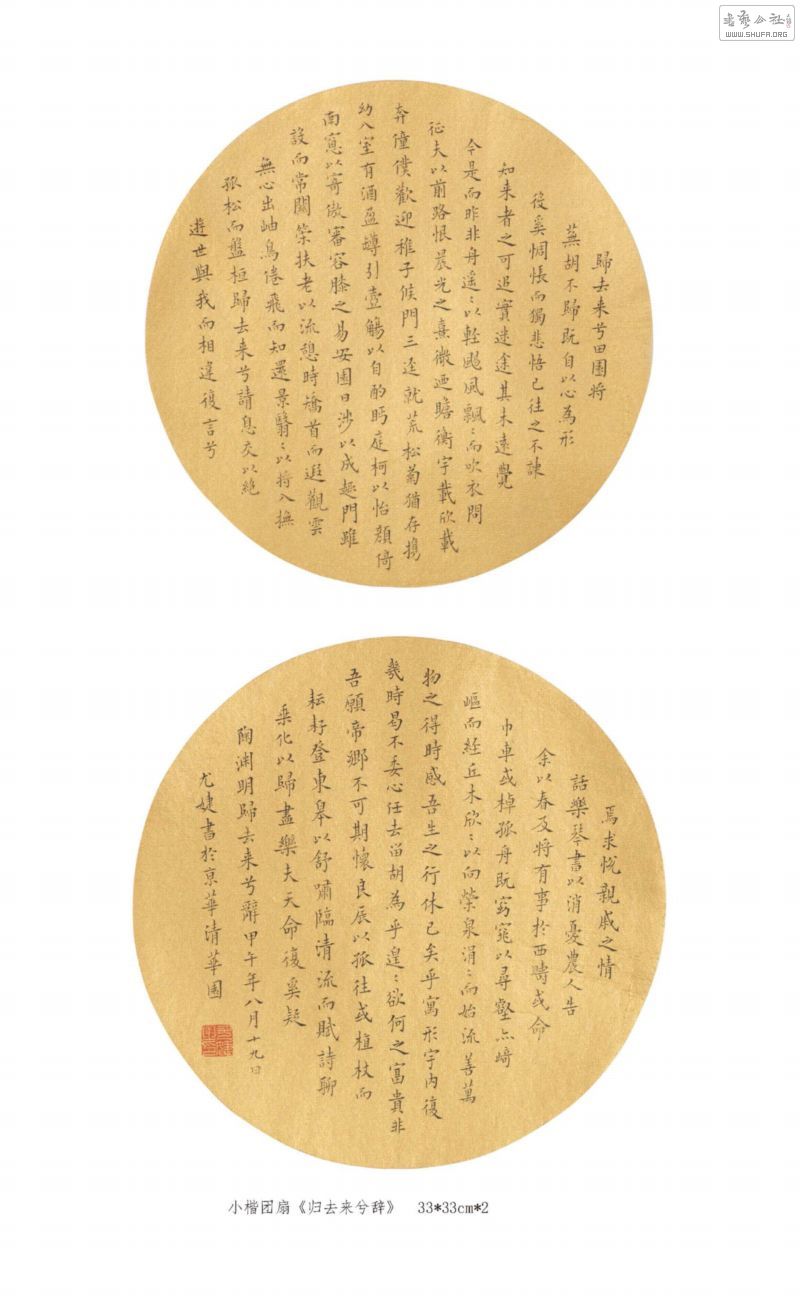 書藝公社
WWW.SHUFA.ORG
歸去来兮田園將
蕪胡不歸既自以心為形
役奚惆悵而獨悲悟已往之不諫
知来者之可追實迷途其未遠覺
今是而昨非舟遥〻以輕颺風飄〻而吹衣問
征夫以前路恨晨光之熹微迺瞻衡宇載欣載
奔僮僕歡迎稚子候門三逕就荒松菊猶存携
幼入室有酒盈罇引壺觴以自酌眄庭柯以怡顔倚
南窓以寄傲審容膝之易安園日涉以成趣門雖
設而常關策扶老以流憩時矯首而遐觀雲
無心出岫鳥倦飛而知還景翳〻以将入撫
孤松而盤桓歸去来兮請息交以絶
遊世與我而相違復言兮
焉求悅親戚之情
話樂琴書以消憂農人告
余以春及将有事於西疇或命
巾車或棹孤舟既窈窕以尋壑亦崎
嶇而経丘木欣〻以向榮泉涓〻而始流善萬
物之得時感吾生之行休已矣乎寓形宇内復
幾時曷不委心任去留胡為乎遑〻欲何之富貴非
吾願帝鄉不可期懷良辰以孤往或植杖而
耘耔登東皋以舒嘯臨清流而賦詩聊
乗化以歸盡樂夫天命復奚疑
陶渊明歸去来兮辭甲午年八月十九日
尤婕書於京華清華園
小楷团扇《归去来兮辞》 33*33cm*2